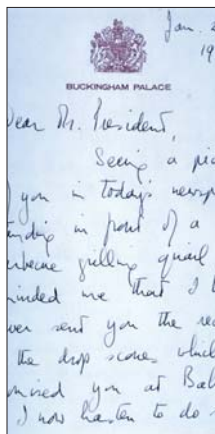 Jan.
19
BUCKINGHAM PALACE
Dear Mr. President,
Seeing a pic
you in today's newsp
nding in front of a
rbecue grilling quail
inded me that I
ver sent you the rec
the drop scones which
omised you at Bal
I now hasten to do s